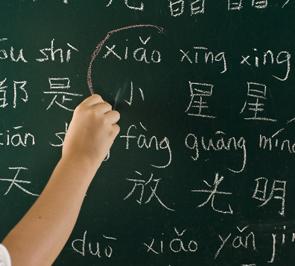 ōu shì xiǎo xīng xing
都是小星星
tiān shàng fàng guāng mín
天 放光明
duō xiǎo yǎn jin